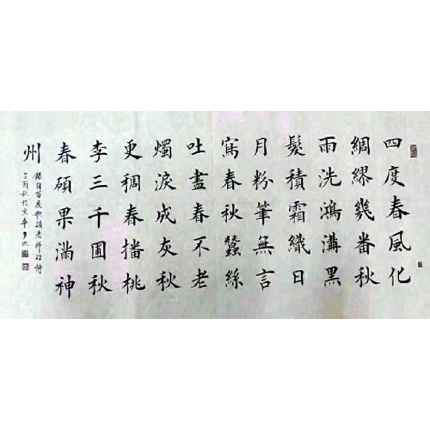 四度春風化
綢繆幾番秋
雨洗鴻溝黑
髮積霜織日
月粉筆無言
寫春秋蠶絲
吐盡春不老
燭淚成灰秋
更稠春播桃
李三千圃秋
春碩果滿神
州
錄自百度歌頌老師的詩
丁酉秋於京華